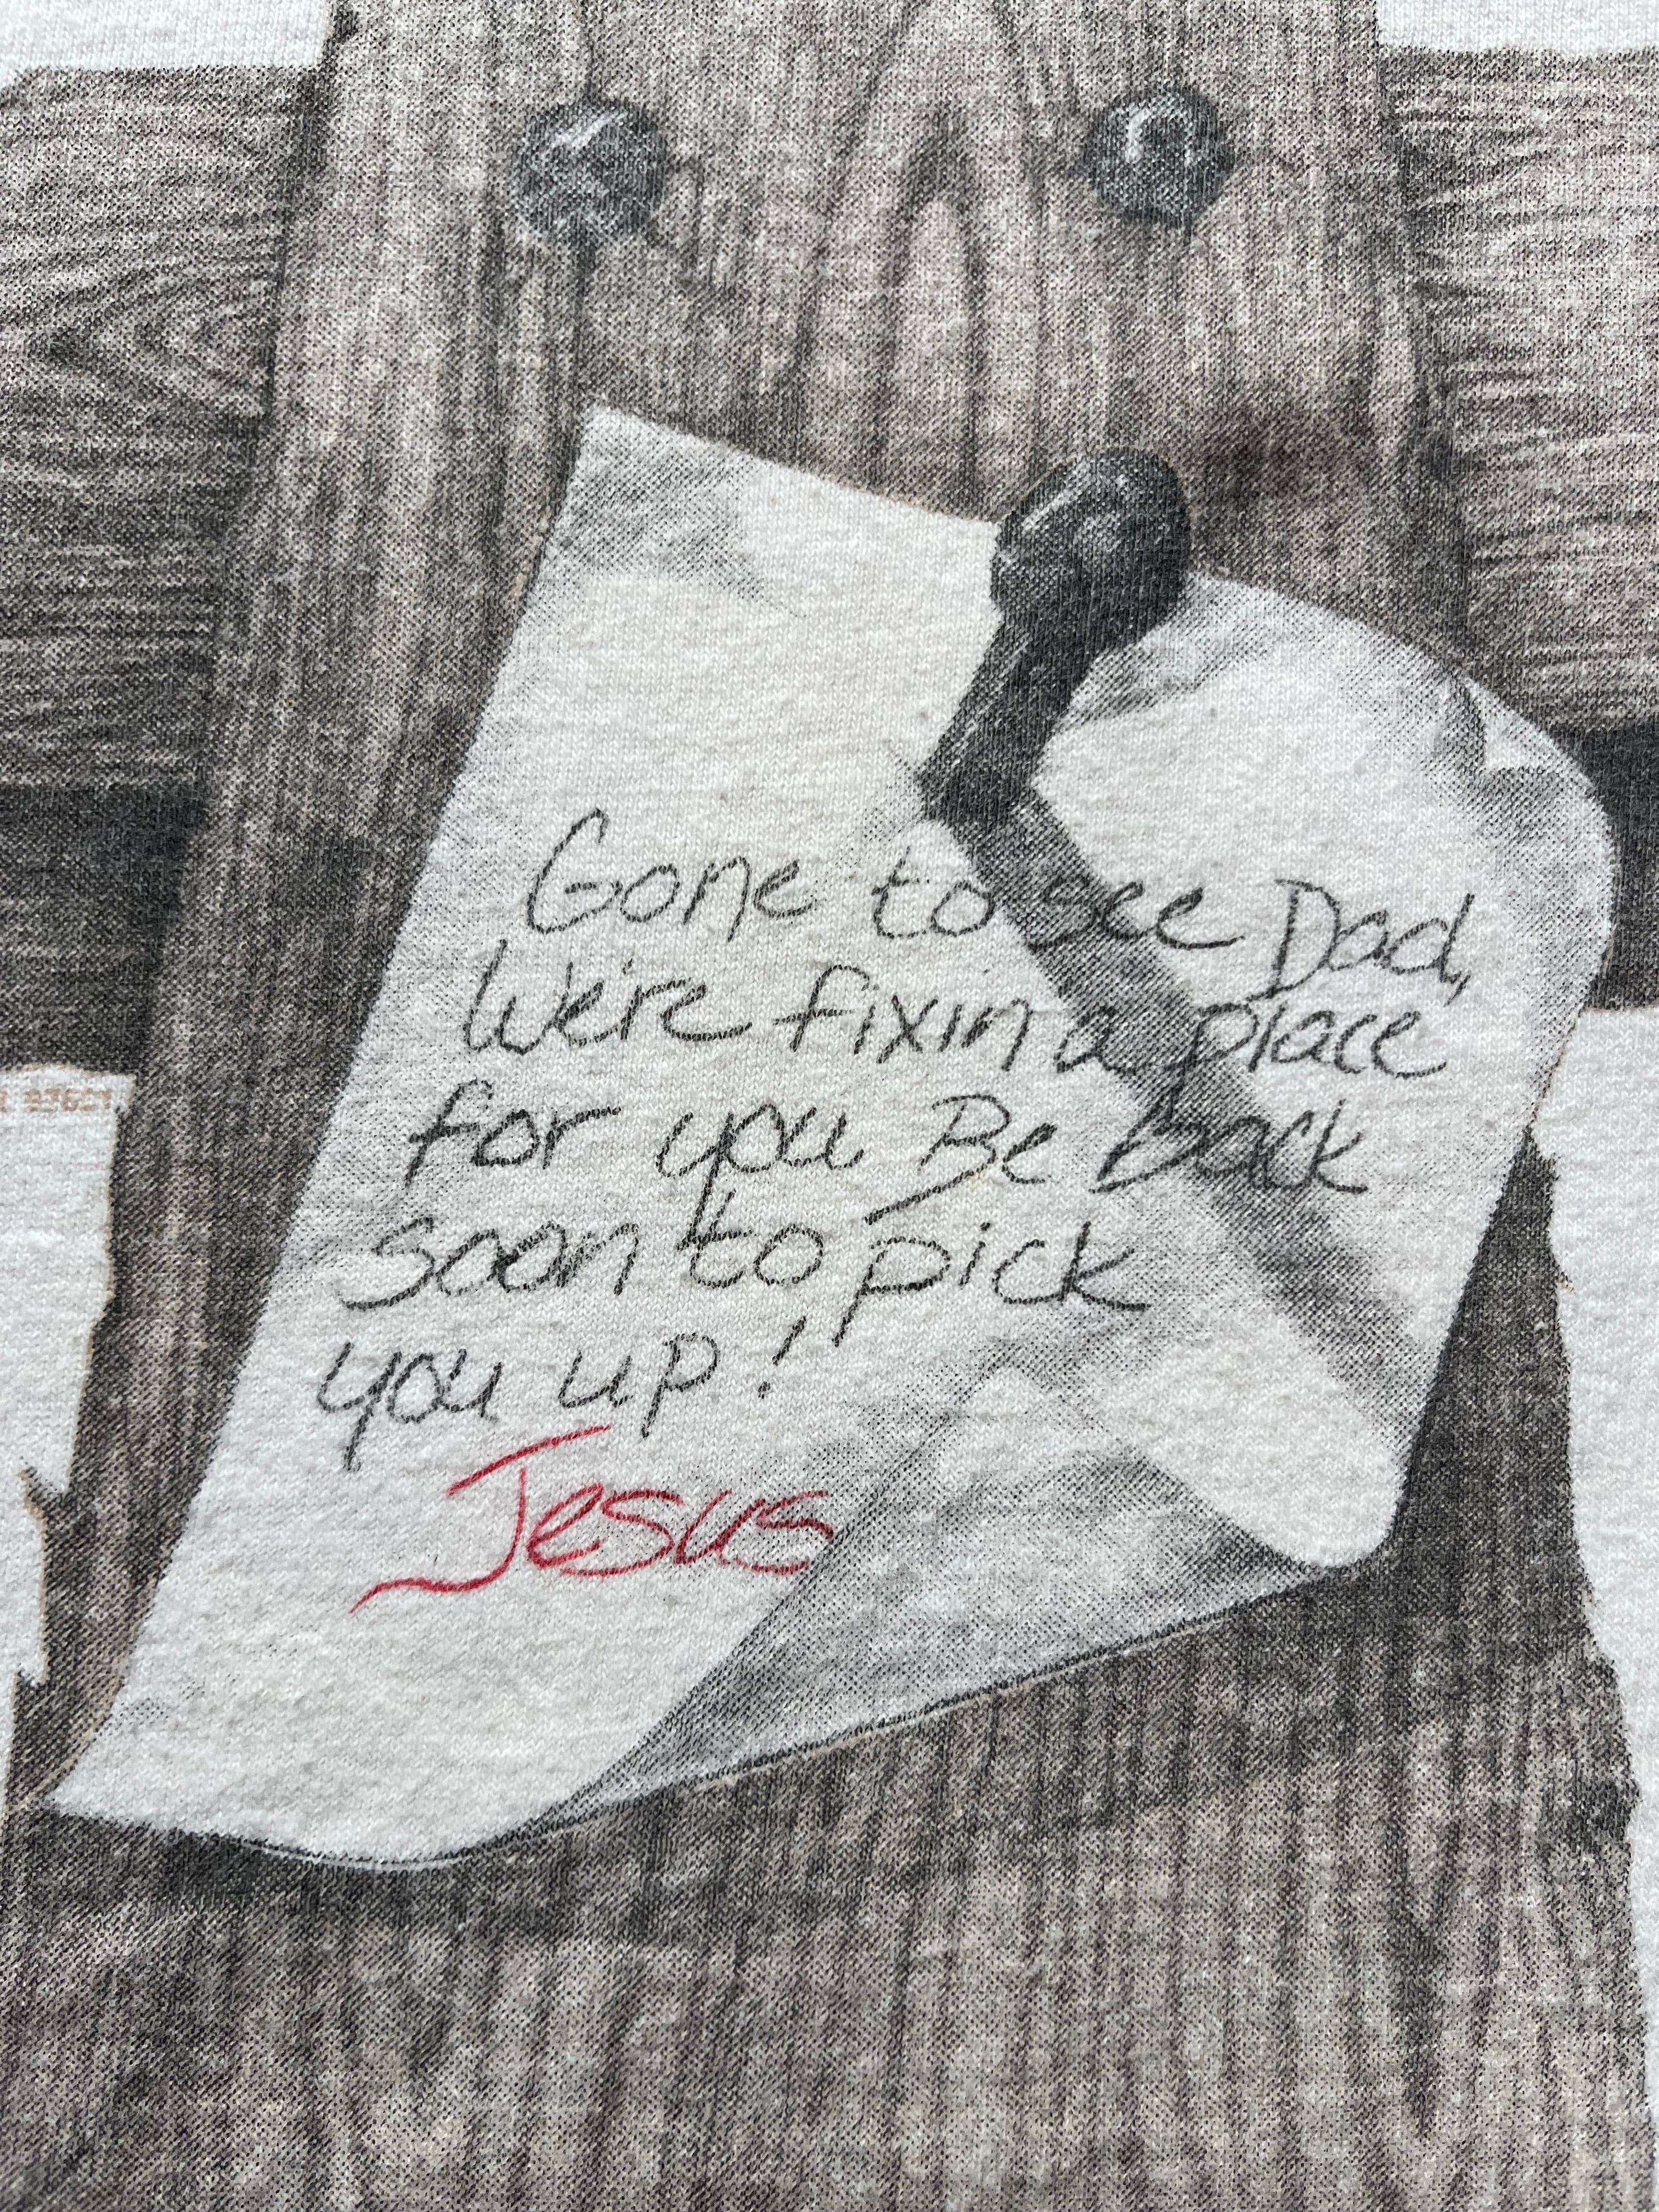 Gone to see Dad,
We're fixin a place
for you Be back
soon to pick
you up!
Jesus